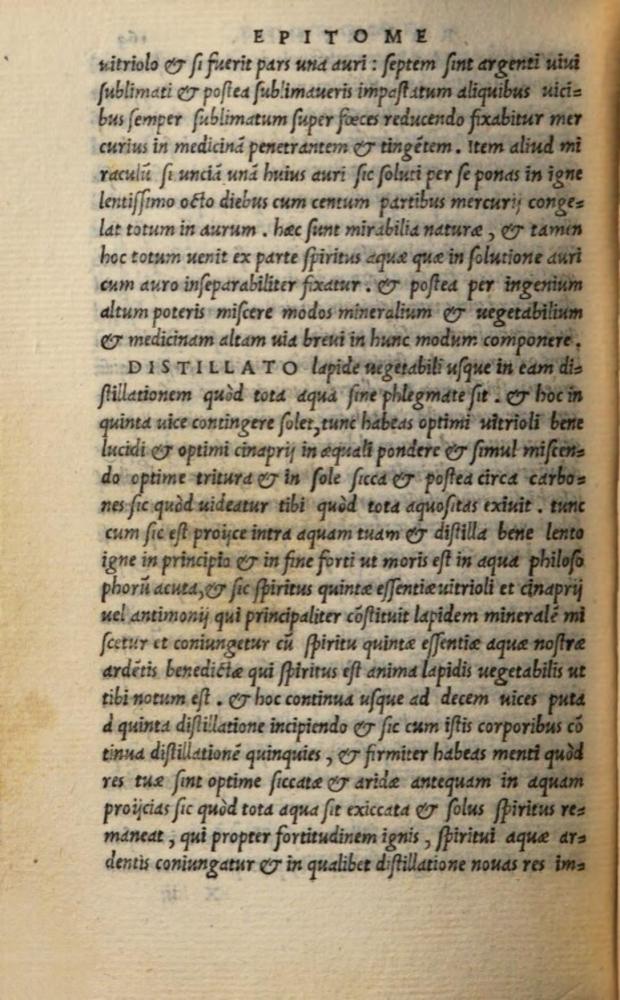 EPITOME
uitriolo & si fuerit pars una auri : septem sint argenti uiui
sublimati & postea sublimaueris impastatum aliquibus uici=
bus semper sublimatum super fœces reducendo fixabitur mer
curius in medicinā penetrantem & tingētem. Item aliud mi
raculū si unciā unā huius auri sic soluti per se ponas in igne
lentissimo octo diebus cum centum partibus mercurij conge=
lat totum in aurum. hæc sunt mirabilia naturæ, & tamen
hoc totum uenit ex parte spiritus aquæ quæ in solutione auri
cum auro inseparabiliter fixatur. & postea per ingenium
altum poteris miscere modos mineralium & uegetabilium
& medicinam altam uia breui in hunc modum componere.
DISTILLATO lapide uegetabili usque in eam di=
stillationem quòd tota aqua sine phlegmate sit. & hoc in
quinta uice contingere solet, tunc habeas optimi uitrioli bene
lucidi & optimi cinaprij in æquali pondere & simul miscen=
do optime tritura & in sole sicca & postea circa carbo=
nes sic quòd uideatur tibi quòd tota aquositas exiuit. tunc
cum sic est proijce intra aquam tuam & distilla bene lento
igne in principio & in fine forti ut moris est in aqua philoso
phorū acuta, & sic spiritus quintæ essentiæ uitrioli et cinaprij
uel antimonij qui principaliter cōstituit lapidem mineralē mi
scetur et coniungetur cū spiritu quintæ essentiæ aquæ nostræ
ardētis benedictæ qui spiritus est anima lapidis uegetabilis ut
tibi notum est. & hoc continua usque ad decem uices puta
à quinta distillatione incipiendo & sic cum istis corporibus cō
tinua distillationē quinquies, & firmiter habeas menti quòd
res tuæ sint optime siccatæ & aridæ antequam in aquam
proijcias sic quòd tota aqua sit exiccata & solus spiritus re=
maneat, qui propter fortitudinem ignis, spiritui aquæ ar=
dentis coniungatur & in qualibet distillatione nouas res im=